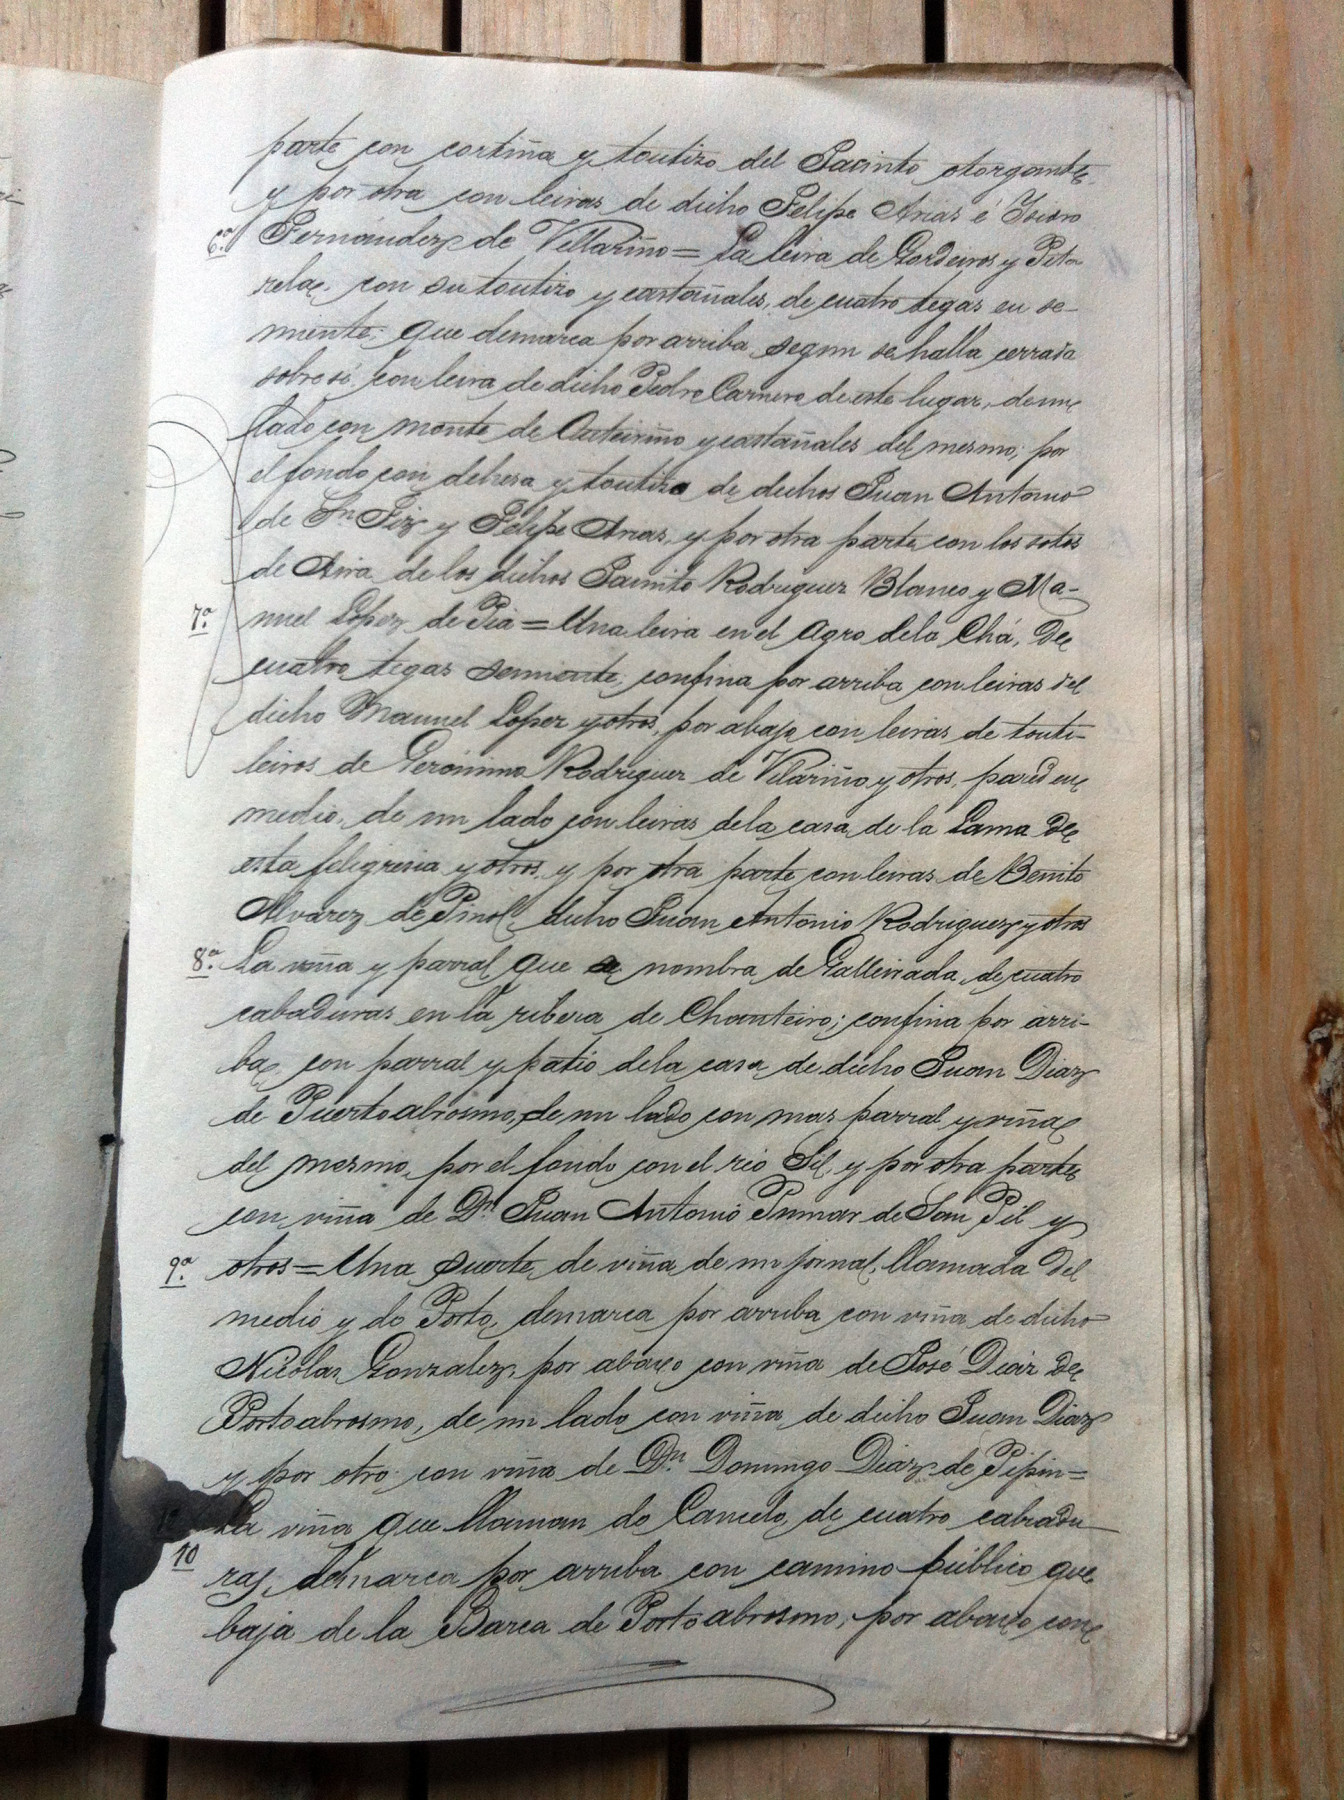 parte con cortiña y toutizo del Jacinto otorgante
y por otra con leiras de dicho Felipe Arias é Isidro
6.ª Fernández de Villariño = La leira de Gordeiros y Peta
relas con su toutizo y castañales, de cuatro tegas en se-
miente; que demarca por arriba segun se halla cerrada
sobre sí con leira de dicho Pedro Carnero de este lugar, de un
lado con monte de Outeiriño y castañales del mesmo; por
el fondo con dehesa y toutizo de dichos Juan Antonio
de Sn Fiz y Felipe Arias, y por otra parte con los sotos
de Aira de los dichos Jacinto Rodriguez Blanco y Ma-
7.ª nuel López de Pia = Una leira en el Agro dela Chá, de
cuatro tegas semiente, confina por arriba con leiras del
dicho Manuel López y otros, por abajo con leiras de touti-
leiros de Gerónimo Rodriguez de Vilariño y otros, pared en
medio, de un lado con leiras dela casa de la Lama de
esta feligresia y otros, y por otra parte con leiras de Benito
Alvarez de Pinol, dicho Juan Antonio Rodriguez y otros
8.ª La viña y parral que se nombra de Galleirada, de cuatro
cabaduras en la ribera de Chanteiro; confina por arri-
ba con parral y patio dela casa de dicho Juan Diaz
de Puertoabrosmo, de un lado con mas parral y viña
del mesmo, por el fondo con el rio Sil, y por otra parte
con viña de Dn Juan Antonio Pumar de San Gil y
9.ª otros = Una suerte de viña de un jornal, llamada del
medio y do Porto, demarca por arriba con viña de dicho
Nicolas Gonzalez, por abaxo con viña de José Diaz de
Portoabrosmo, de un lado con viña de dicho Juan Diaz
y por otro con viña de Dn Domingo Diaz de Pipin =
10 La viña que llaman do Cancelo, de cuatro cabadu
ras, demarca por arriba con camino público que
baja de la Barca de Portoabrosmo, por abaxo con